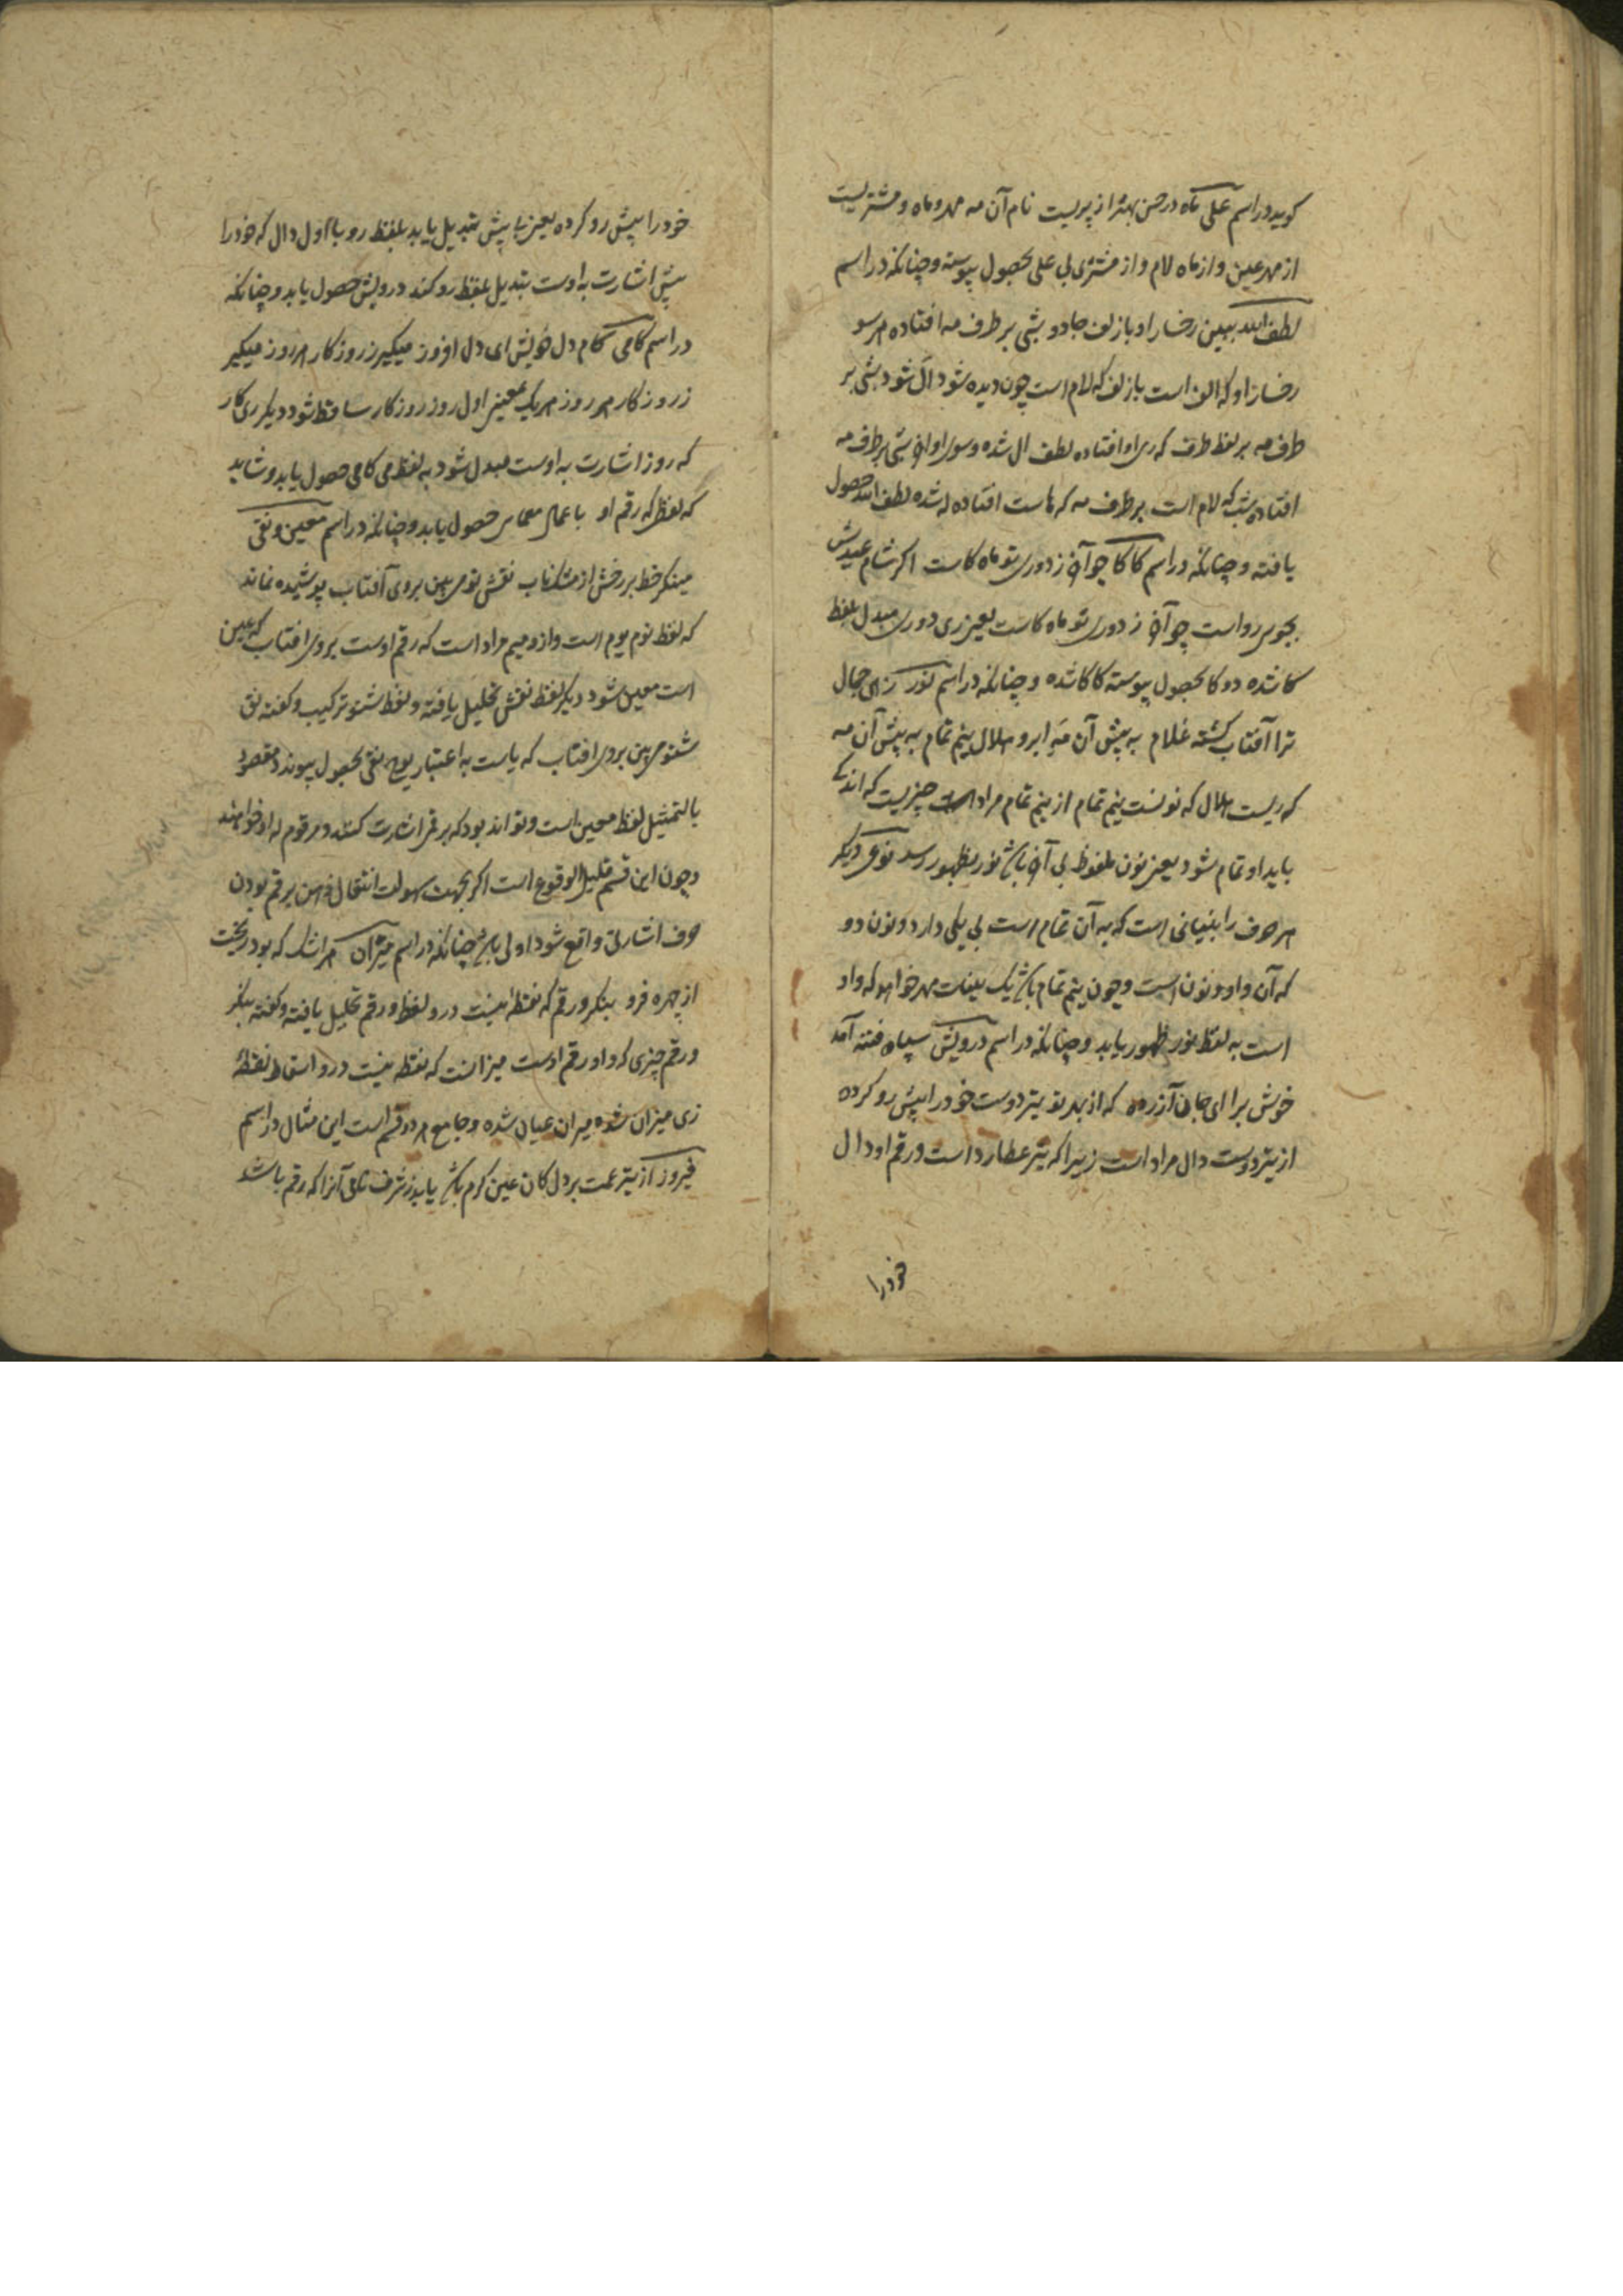 کوید در اسم علی ماه در حسن بهتر از پریست نام آن مه مهر و ماه و مشتریست
از مهر عین و از ماه لام و از مشتری یی علی بحصول پیوسته و چنانکه در اسم
لطف الله ببین رخسار او با زلف جادو بشی بر طرف مه افتاده هر سو
رخسار او که الف است با زلف که لام است چون دیده شود ال شود بشی بر
طرف مه بر لفظ طرف که ری او افتاده لطف ال شده و سوی او ان شی بر طرف مه
افتاده شب که لام است بر طرف مه که هاست افتاده له شده لطف الله حصول
یافته و چنانکه در اسم کاکا چو آن ز دوری تو ماه کاست اکر شام عیدش
بجوی رواست چو آن ز دوری تو ماه کاست یعنی ری دوری مبدل بلفظ
کا شده دو کا بحصول پیوسته کاکا شده و چنانکه در اسم نور زهی جمال
ترا آفتاب کشته غلام به پیش آن مه ابرو هلال نیم تمام به پیش آن مه
که ریست هلال که نونست نیم تمام از نیم تمام مراد است چیزیست که اندکی
باید او تمام شود یعنی نون ملفوظ بی آن باش نور بظهور رسد نوعی دیکر
هر حرف را بنیانی است که به آن تمام است بی یکی دارد و نون دو
که آن واو و نون است و چون نیم تمام باش یک بینات مهر خواهو که واو
است به لفظ نور ظهور یابد و چنانکه در اسم درویش سپاه فتنه آمد
خوش برا ای جان آزرده که از بهر تو تیر دوست خود را پیش رو کرده
از تیر دوست دال مراد است زیرا که تیر عطارد است و رقم او دال
خود را
خود را پیش رو کرده یعنی با پیش تبدیل یابد بلفظ رو با اول دال که خود را
پیش اشارت به اوست تبدیل بلفظ رو کند درویش حصول یابد و چنانکه
در اسم کامی کام دل خویش ای دل افروز میکیر ز روزکار هر روز میکیر
ز روزکار هر روز هر یک یعنی اول روز روزکار ساقط شود دیکری کار
که روز اشارت به اوست مبدل شود به لفظ می کامی حصول یابد و شاید
که لفظ که رقم او با عمال معمایی حصول یابد و چنانکه در اسم معین و نقی
مینکر خط بر رخش از مشکناب نقش نوم بین بروی آفتاب پوشیده نماند
که لفظ نوم یوم است و ازو میم مراد است که رقم اوست بروی افتاب که عین
است معین شود دیکر لفظ نقش تحلیل یافته و لفظ شنو ترکیب و کفته نق
شنوی بین بروی افتاب که یاست به اعتبار یوح نقی بحصول پیوندد مقصود
بالتمثیل لفظ معین است و تواند بود که برقم اشارت کنند و مرقوم له او خواهند
و چون این قسم قلیل الوقوع است اکر بجهت سهولت انتقال ذهن برقم بودن
حرف اشارتی واقع شود اولی باش چنانکه در اسم میران هر اشک که بود ریخت
از چهره فرو بنکر ورقم که نقطه نیست درو لفظ ورقم تحلیل یافته و کفته بنکر
و رقم چیزی که واو رقم اوست میزانست که نقطه نیست درو اسقاط نقطهٔ
زی میزان شده میران عیان شده و جامع هر دو قسم است این مثال در اسم
فیروز از تیر غمت بر دل کان عین کرم باش یابد ز شرف آنرا که رقم باشد